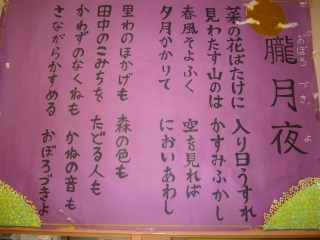 朧月夜
おぼろづきよ
菜の花ばたけに 入り日うすれ
見わたす山のは かすみふかし
春風そよふく 空を見れば
夕月かかりて においあわし
里わのほかげも 森の色も
田中のこみちを たどる人も
かわずのなくねも かねの音も
さながらかすめる おぼろづきよ